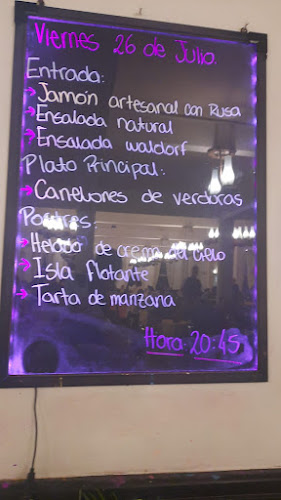 Viernes 26 de Julio
Entrada:
→ Jamón artesanal con Rusa
→ Ensalada natural
→ Ensalada waldorf
Plato Principal:
→ Canelones de verduras
Postres:
→ Helado de crema del cielo
→ Isla flotante
→ Tarta de manzana
Hora 20:45